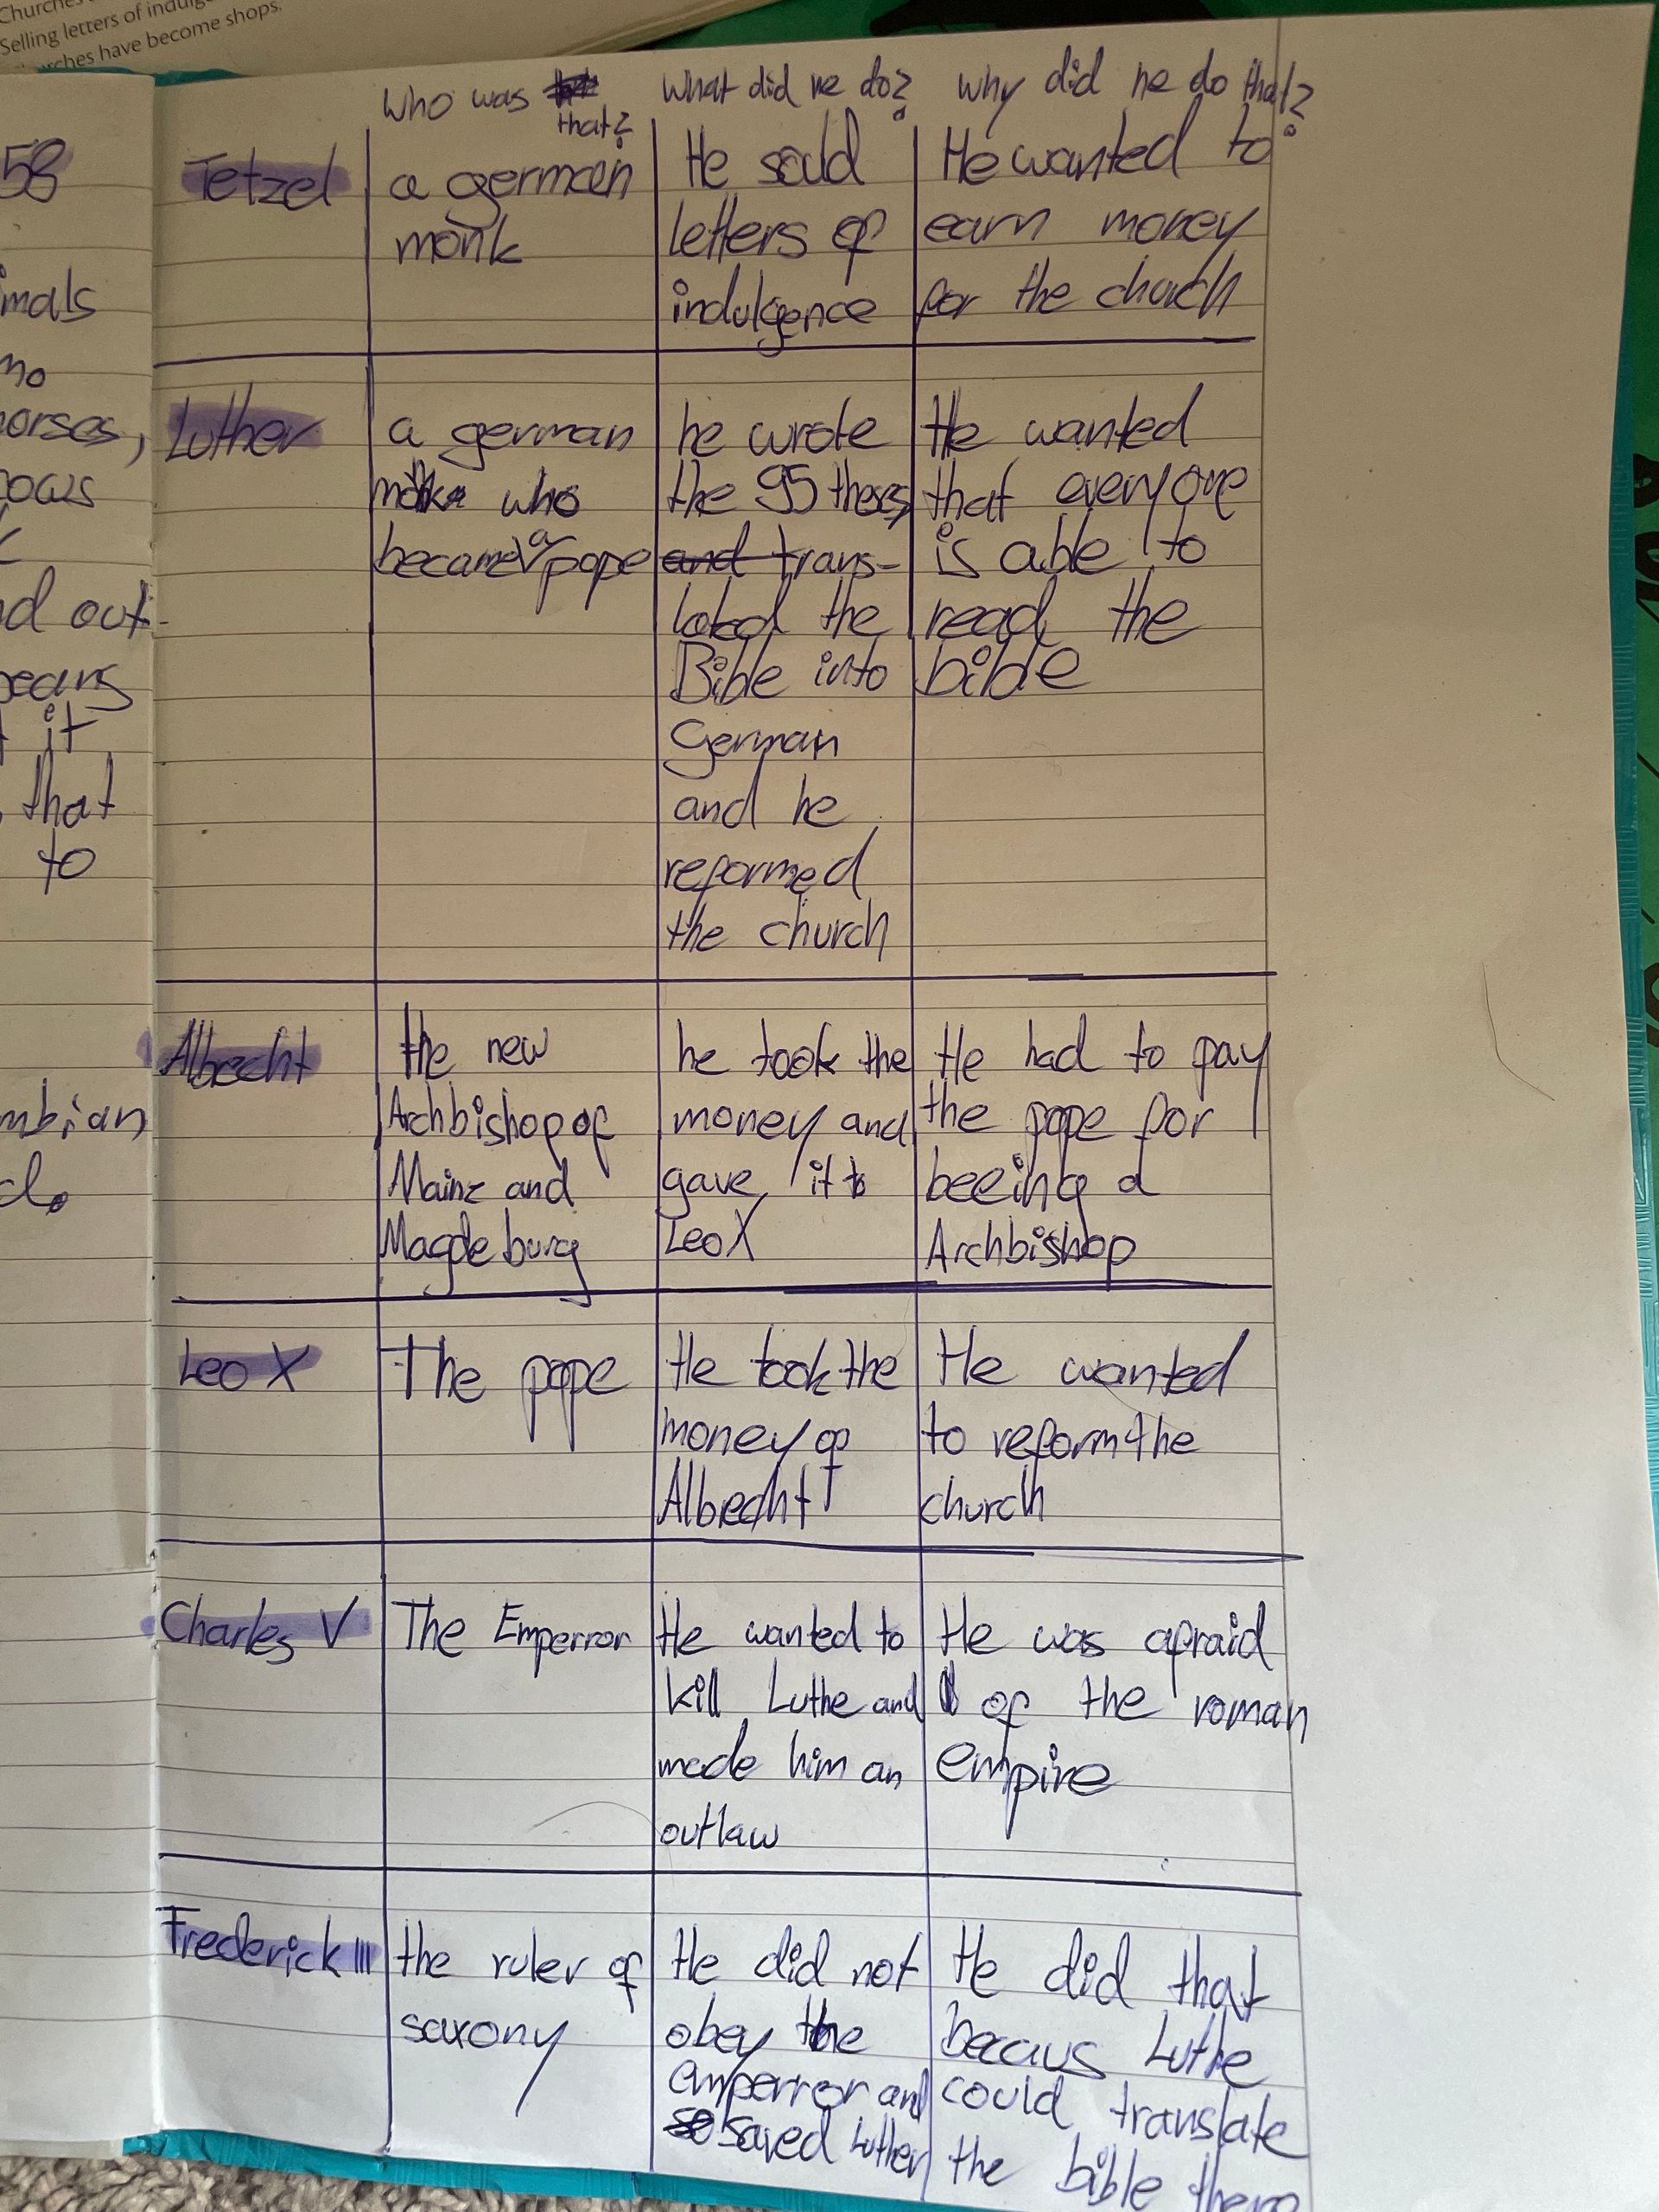 Churches
Selling letters of indulg
ches have become shops.
58
imals
no
horses,
cows
d out-
bears
it
that
to
mbrian
d.
Who was that? What did he do? why did he do that?
Tetzel
a german
monk
He sold
letters of
indulgence
He wanted to
earn money
for the church
Luther
a german
monk who
became a pope
he wrote
the 95 theses,
and trans-
lated the
Bible into
German
and he
reformed
the church
He wanted
that everyone
is able to
read the
bible
Albrecht
the new
Archbishop of
Mainz and
Magdeburg
he took the
money and
gave it to
Leo X
He had to pay
the pope for
beeing a
Archbishop
Leo X
The pope
He took the
money of
Albrecht
He wanted
to reform the
church
Charles V
The Emperror
He wanted to
kill Luthe and
made him an
outlaw
He was afraid
of the roman
empire
Frederick III
the ruler of
saxony
He did not
obey the
emperror and
so saved Luther
He did that
becaus Luthe
could translate
the bible there